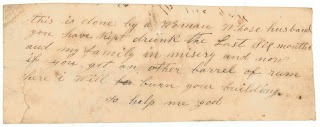 this is done by a Woman Whose husband
you have kept drunk the Last Six months
and my family in misery and now
if you get an other barrel of rum
here i will burn your building
So help me god